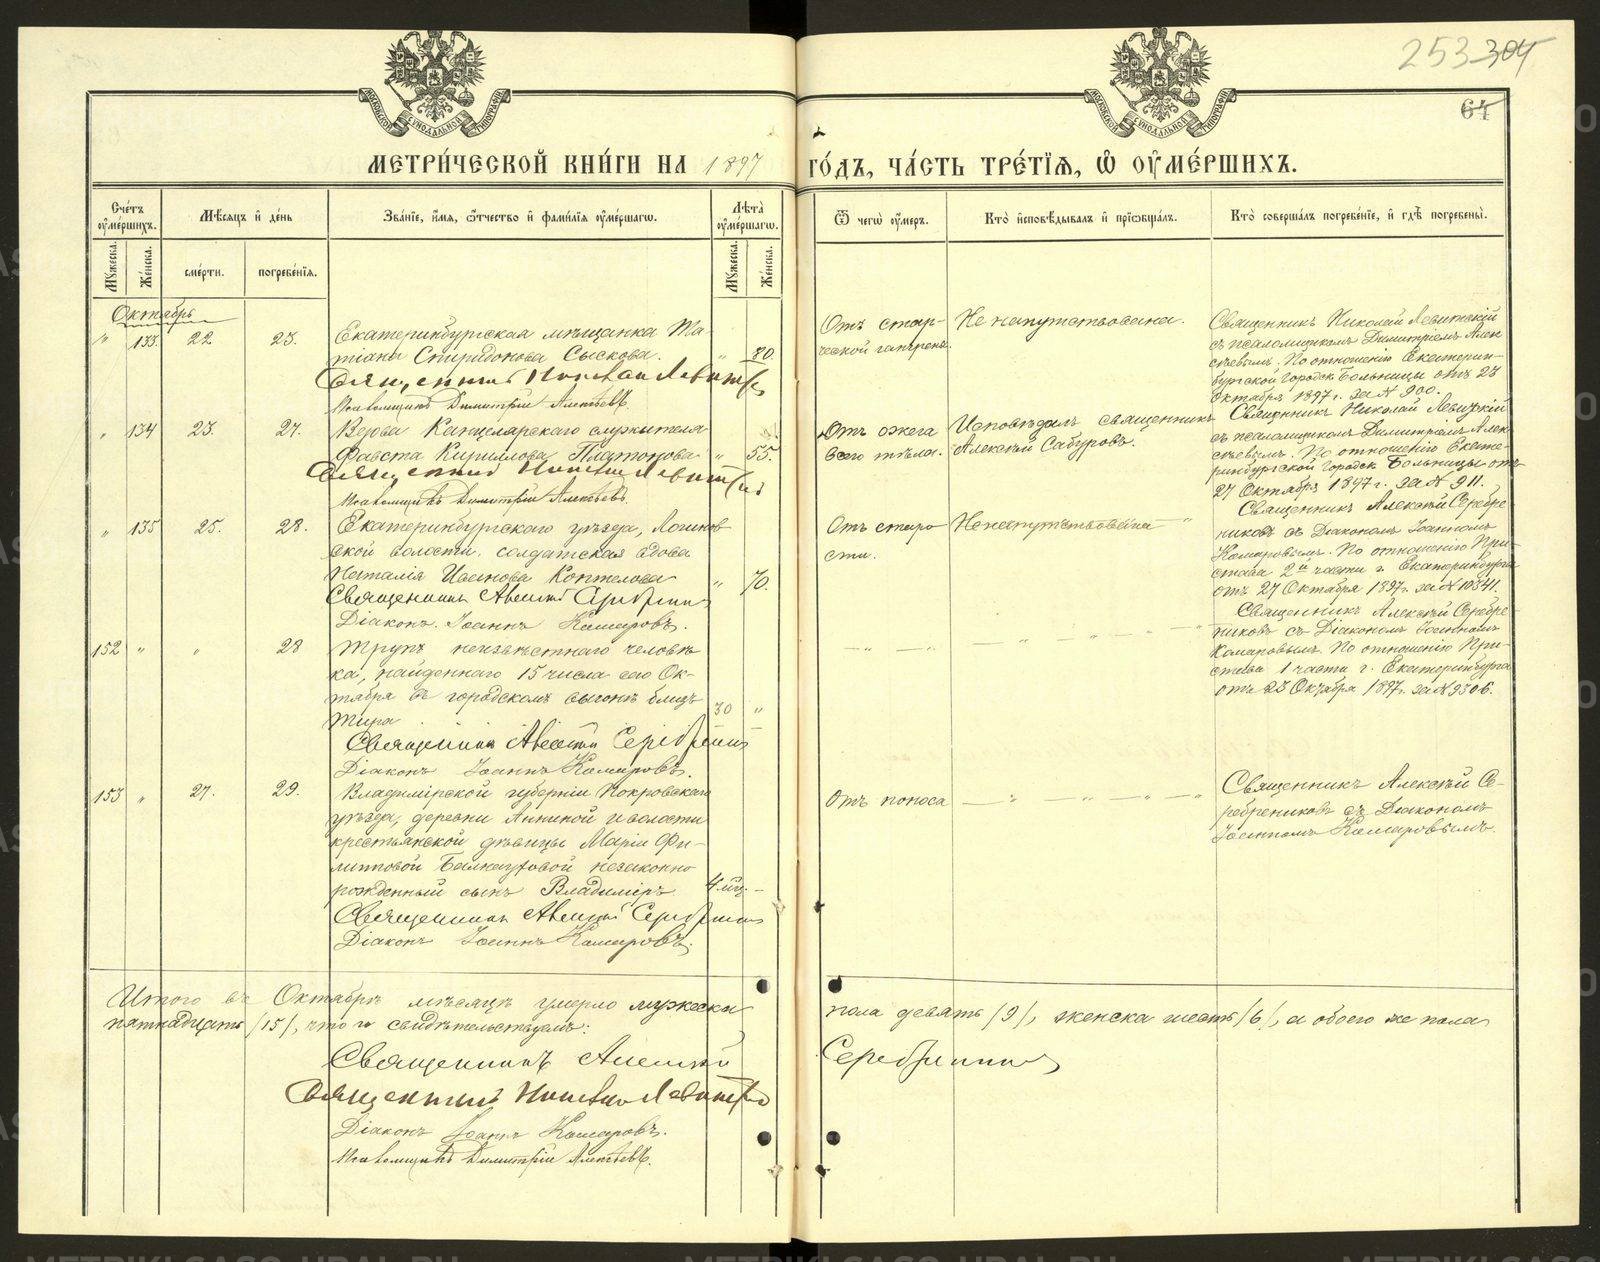 253 304
64
МОСКОВСКОЙ СѴНОДАЛЬНОЙ ТИПОГРАФІИ
МОСКОВСКОЙ СѴНОДАЛЬНОЙ ТИПОГРАФІИ
МЕТРИ́ЧЕСКОЙ КНИ́ГИ НА 1897 ГО́ДЪ, ЧА́СТЬ ТРЕ́ТІЯ, Ѡ ОУМЕ́РШИХЪ.
Сче́тъ оумершихъ.
Мѣсяцъ и де́нь
Зва́ніе, и́мя, ѿтчество и фами́лія оумершагѡ.
Лѣта̀ оумершагѡ.
Ѿ чегѡ̀ оумеръ.
Кто̀ исповѣдывалъ и пріѡбща́лъ.
Кто̀ соверша́лъ погребе́ніе, и гдѣ погребены̀.
Мꙋжеска.
Же́нска.
сме́рти.
погребе́нія.
Мꙋжеска.
Же́нска.
Октябрь
" 133. 22. 23.
Екатеринбургская мѣщанка Та-
тіана Спиридонова Сыскова. " 80.
Священникъ Николай Левитскій
Псаломщикъ Димитрій Алексѣевъ
Отъ стар-
ческой гангрены.
Не напутствована.
Священникъ Николай Левитскій
съ псаломщикомъ Димитріемъ Алек
сѣевымъ. По отношенію Екатерин-
бургской Городск Больницы отъ 23
Октября 1897 г. за № 900.
" 134 23. 27.
Вдова Канцелярскаго служителя
Фавста Кириллова Платонова " 55.
Священникъ Николай Левитскій
Псаломщикъ Димитрій Алексѣевъ.
Отъ ожега
всего тѣла.
Исповѣдалъ священникъ
Алексѣй Сабуровъ.
Священникъ Николай Левицкій
съ псаломщикомъ Димитріемъ Алек
сѣевымъ. По отношенію Екате-
ринбургской Городск Больницы отъ
27 Октября 1897 г. за № 911.
" 135 25. 28.
Екатеринбургскаго уѣзда, Логинов
ской волости, солдатская вдова
Наталія Иванова Коптелова " 70.
Священникъ Алексѣй Серебрениковъ
Діаконъ Іоаннъ Комаровъ.
Отъ старо
сти.
Ненапутствована "
Священникъ Алексѣй Серебре-
никовъ съ Діакономъ Іоанномъ
Комаровымъ. По отношенію При-
става 2й части г. Екатеринбурга
отъ 27 Октября 1897 г. за № 10341.
152 " " 28
Трупъ неизвѣстнаго человѣ
ка, найденнаго 15 числа сего Ок-
тября въ городскомъ выгонѣ близъ
Тира 30 "
Священникъ Алексѣй Серебрениковъ
Діаконъ Іоаннъ Комаровъ.
Священникъ Алексѣй Серебре-
никовъ съ Діакономъ Іоанномъ
Комаровымъ. По отношенію При-
става 1 части г. Екатеринбурга
отъ 23 Октября 1897 г. за № 9306.
153 " 27. 29.
Владимірской губерніи Покровскаго
уѣзда, деревни Анниной волости
крестьянской дѣвицы Маріи Фи-
липповой незаконно
рожденный сынъ Владиміръ 4 мц. -
Священникъ Алексѣй Серебрениковъ
Діаконъ Іоаннъ Комаровъ.
Отъ поноса
Священникъ Алексѣй Се-
ребрениковъ съ Діакономъ
Іоанномъ Комаровымъ.
Итого въ Октябрѣ мѣсяцѣ умерло мужеска пола девять /9/, женска шесть /6/, а обоего же пола
пятнадцать /15/, что и свидѣтельствуемъ:
Священникъ Алексѣй Серебрениковъ
Священникъ Николай Левитскій
Діаконъ Іоаннъ Комаровъ.
Псаломщикъ Димитрій Алексѣевъ.
METRIKI.GASO-URAL.RU